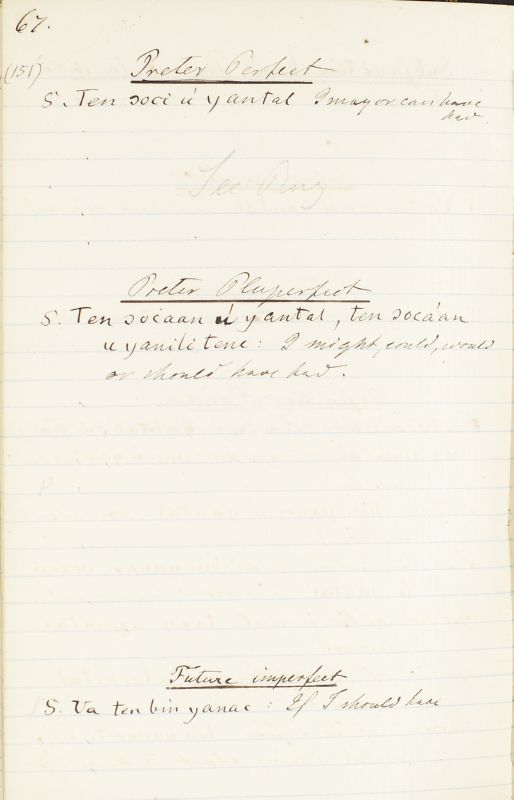 67.
(151)
Preter Perfect
S. Ten ɔoci u yantal I may or can have
had
See Ruz
Preter Pluperfect
S. Ten ɔocaan u yantal, ten ɔocáan
u yanili tene: I might, could, would
or should have had.
Future imperfect
S. Va ten bin yanac: If I should have